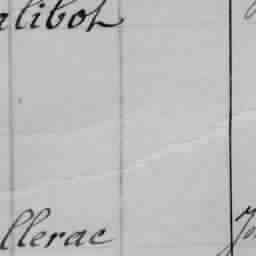 alibot
llerac